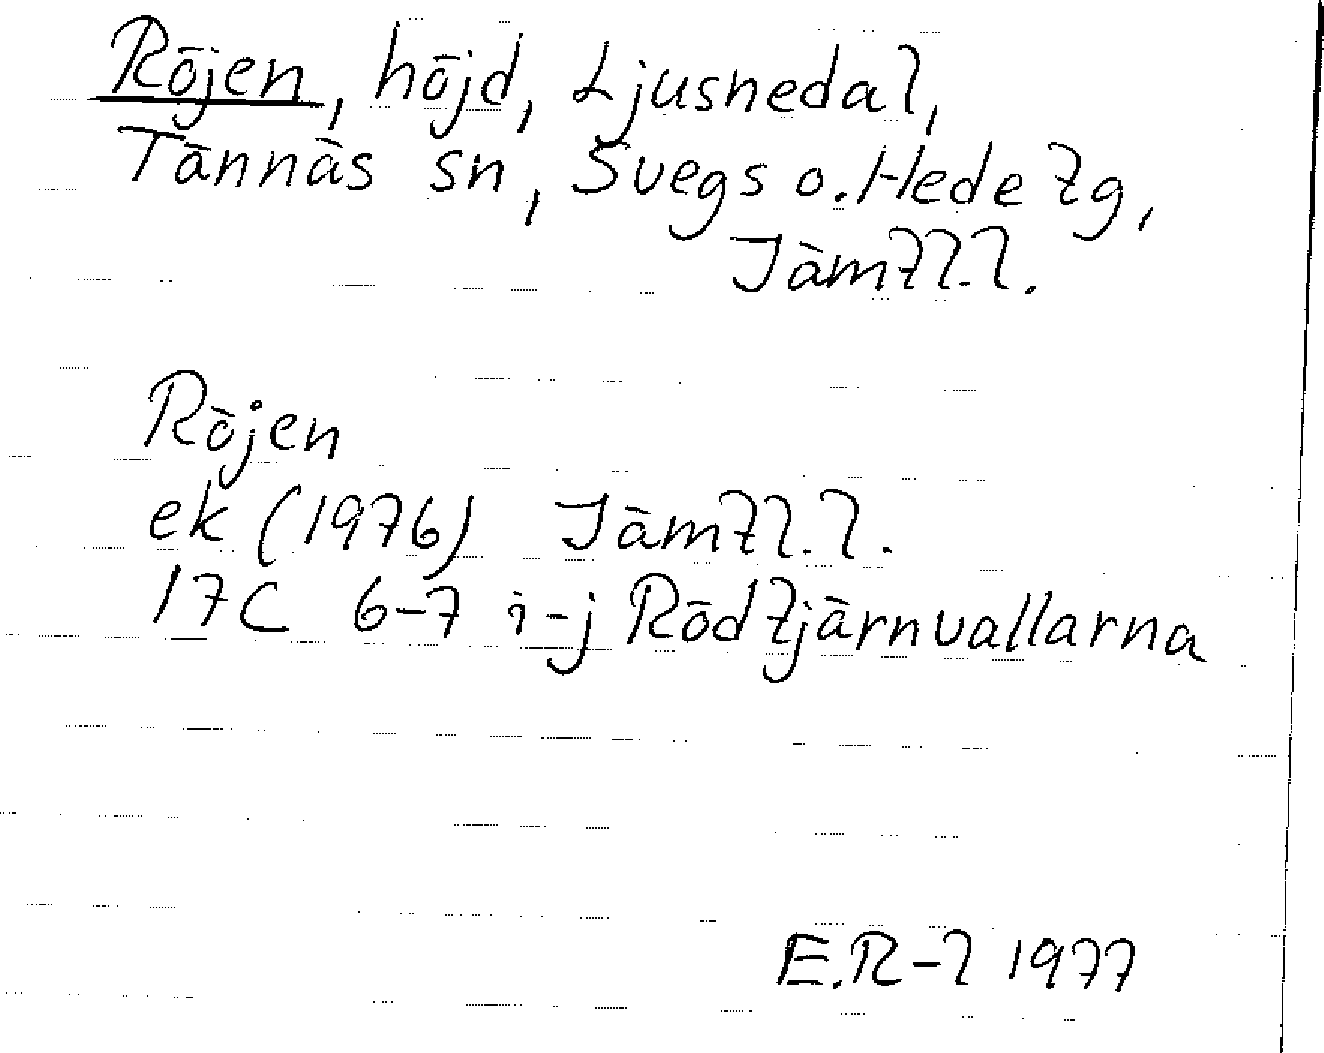 Röjen, höjd, Ljusnedal,
Tännäs sn, Svegs o. Hede tg,
Jämtl. l.
Röjen
ek (1976) Jämtl. l.
17C 6-7 i-j Rödtjärnvallarna
E.R-l 1977